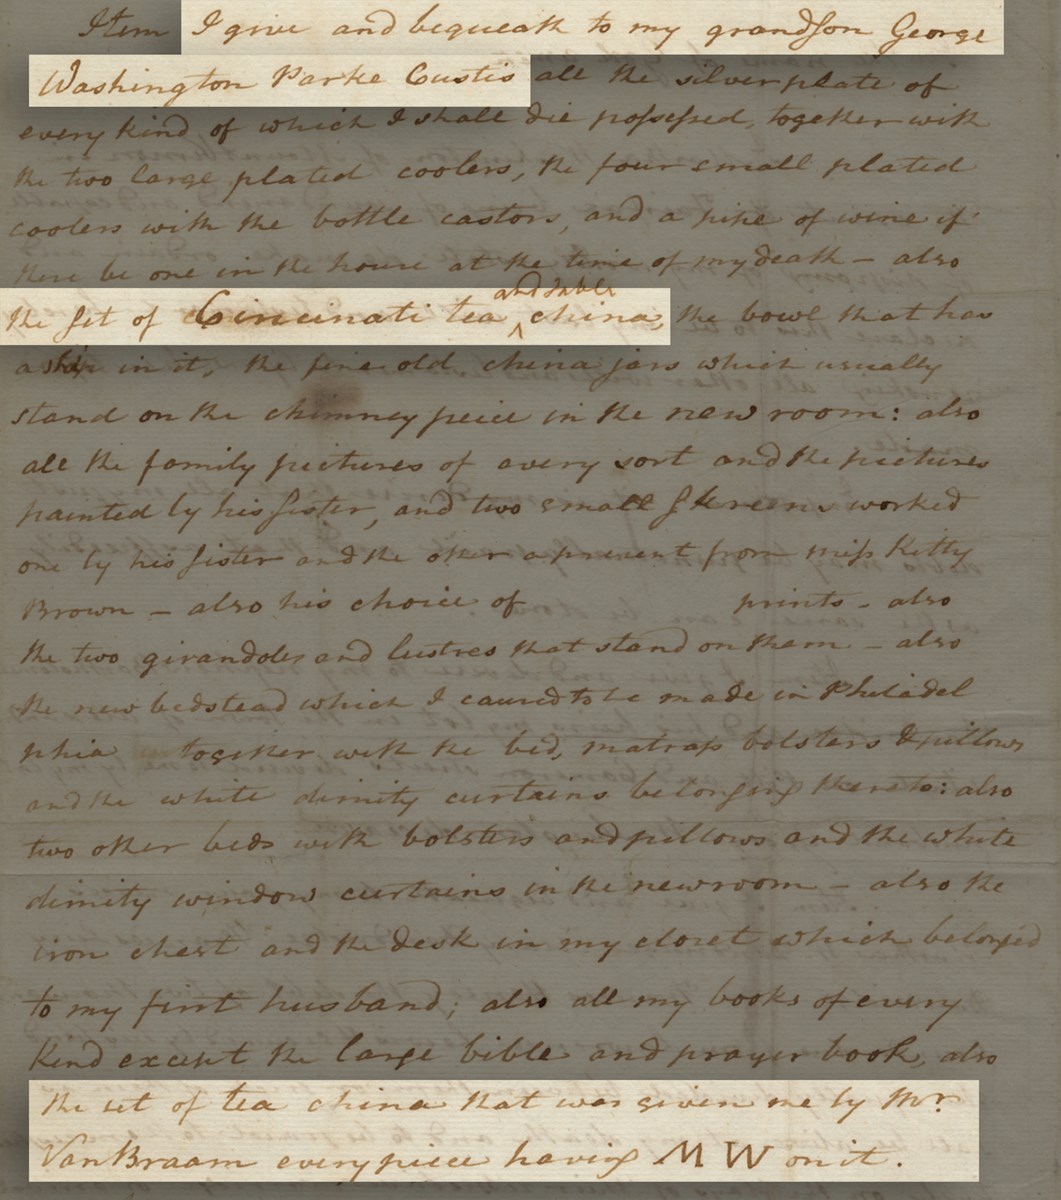 Item I give and bequeath to my grandson George
Washington Parke Custis all the silver plate of
every kind of which I shall die possessed, together with
the two large plated coolers, the four small plated
coolers with the bottle castors, and a pipe of wine if
there be one in the house at the time of my death – also
the set of Cincinati tea and table china, the bowl that has
a ship in it, the fine old china jars which usually
stand on the chimney piece in the new room: also
all the family pictures of every sort and the pictures
painted by his sister, and two small skreens worked
one by his sister and the other a present from miss Kitty
Brown – also his choice of prints – also
the two girandoles and lustres that stand on them – also
the new bedstead which I caused to be made in Philadel
phia together with the bed, matrass bolsters & pillows
and the white dimity curtains belonging thereto: also
two other beds with bolsters and pillows and the white
dimity window curtains in the new room – also the
iron chest and the desk in my closet which belonged
to my first husband; also all my books of every
kind except the large bible and prayer book, also
the set of tea china that was given me by Mr.
VanBraam every piece having M W on it.